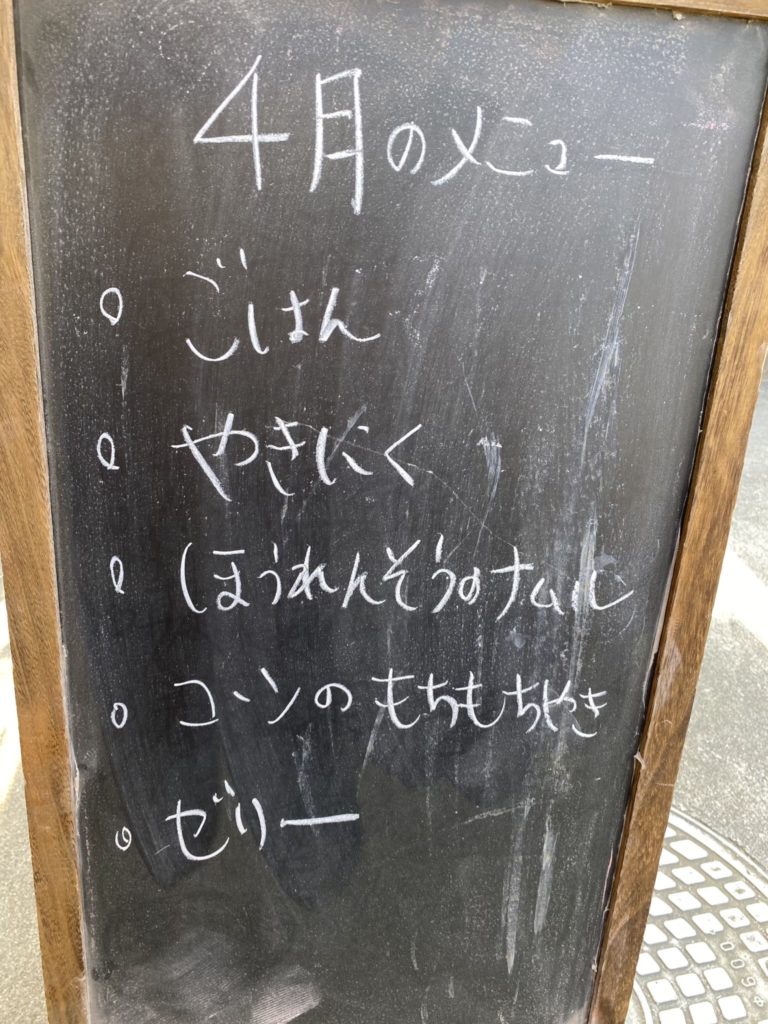 4月のメニュー
。ごはん
。やきにく
。ほうれんそうのナムル
。コーンのもちもちやき
。ゼリー